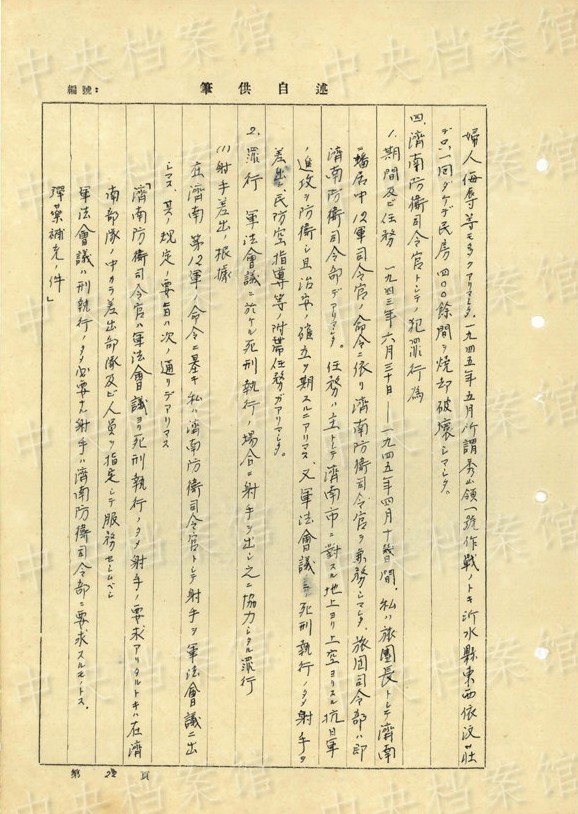 中央档案馆
編號：
述自供筆
婦人侮辱等モ多クアリマシタ。一九四五年五月所謂秀嶺一號作戦ノトキ沂水縣東西依汶庄
デハ一回ダケデ民房四〇〇餘間ヲ焼却破壊シマシタ。
四、濟南防衛司令官トシテノ犯罪行為
1. 期間及ビ任務 一九四三年六月三十日―一九四五年四月十 間、私ハ旅團長トシテ濟南
蟠居中12軍司令官ノ命令ニ依リ濟南防衛司令官ヲ兼務シマシタ。旅団司令部ハ即
濟南防衛司令部デアリマシタ。任務ハ主トシテ濟南市ニ対スル地上ヨリ上空ヨリスル抗日軍
ノ進攻ヲ防衛シ且治安ノ確立ヲ期スルニアリマス、又軍法會議ニ死刑執行ノタメ射手ヲ
差出シ民防空指導等ノ附帯任務ガアリマシタ。
2. 罪行 軍法會議ニ於ケル死刑執行ノ場合ニ射手ヲ出シ之ニ協力シタル罪行
(1) 射手差出ノ根據
在濟南第12軍ノ命令ニ基キ私ハ濟南防衛司令官トシテ射手ヲ軍法會議ニ出
シマス、其ノ規定ノ要旨ハ次ノ通リデアリマス
「濟南防衛司令官ハ軍法會議ヨリ死刑執行ノタメ射手ノ要求アリタルトキハ在濟
南部隊ノ中カラ差出部隊及ビ人員ヲ指定シテ服務セシムベシ
軍法會議ハ刑執行ノタメ必要ナ射手ハ濟南防衛司令部ニ要求スルモノトス、
彈薬補充ノ件」
第 頁